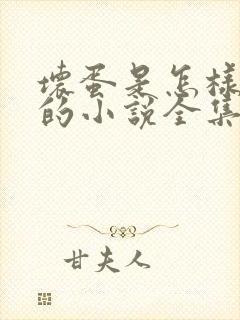 壞蛋是怎樣
的小說全集
甘夫人